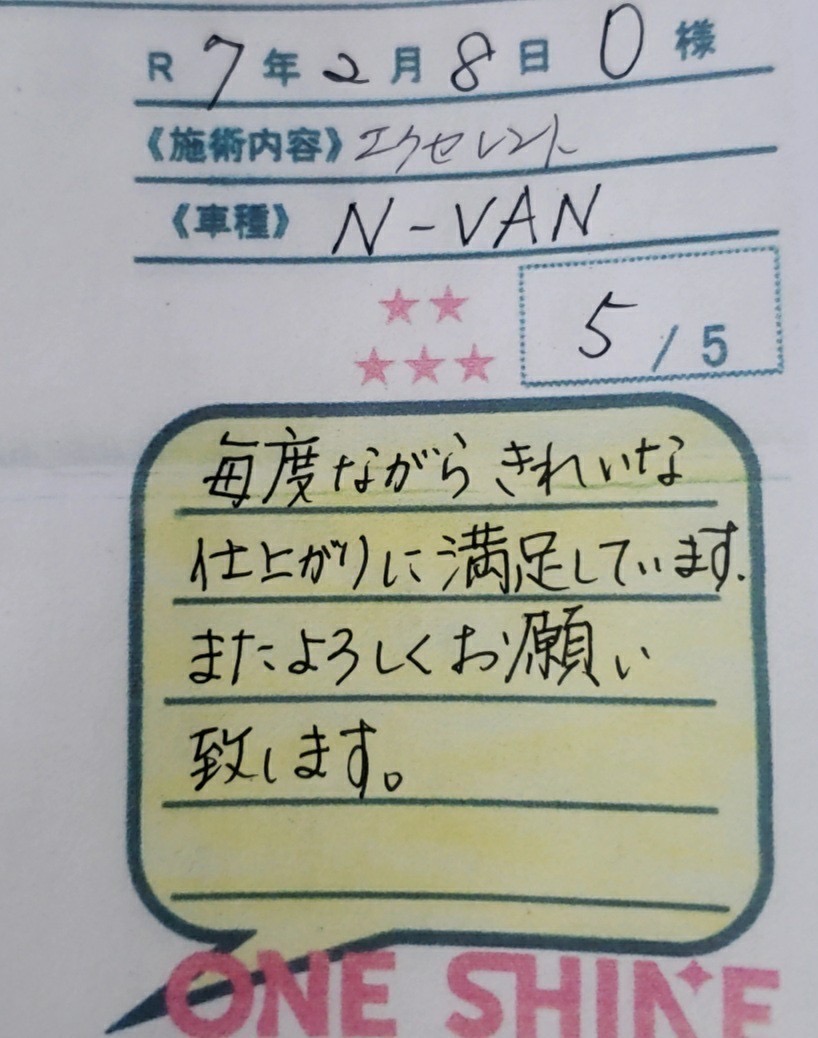 R 7年 2月 8日 O 様
《施術内容》エクセレント
《車種》N-VAN
5/5
毎度ながら きれいな
仕上がりに満足しています.
またよろしくお願い
致します。
ONE SHINE